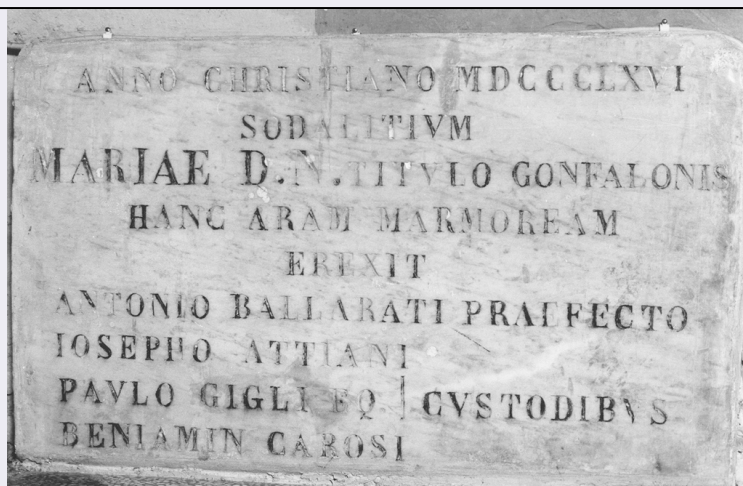 ANNO CHRISTIANO MDCCCLXVI
SODALITIVM
MARIAE D.N. TITVLO GONFALONIS
HANC ARAM MARMOREAM
EREXIT
ANTONIO BALLARATI PRAEFECTO
IOSEPHO ATTIANI
PAVLO GIGLI EQ CVSTODIBVS
BENIAMIN CAROSI